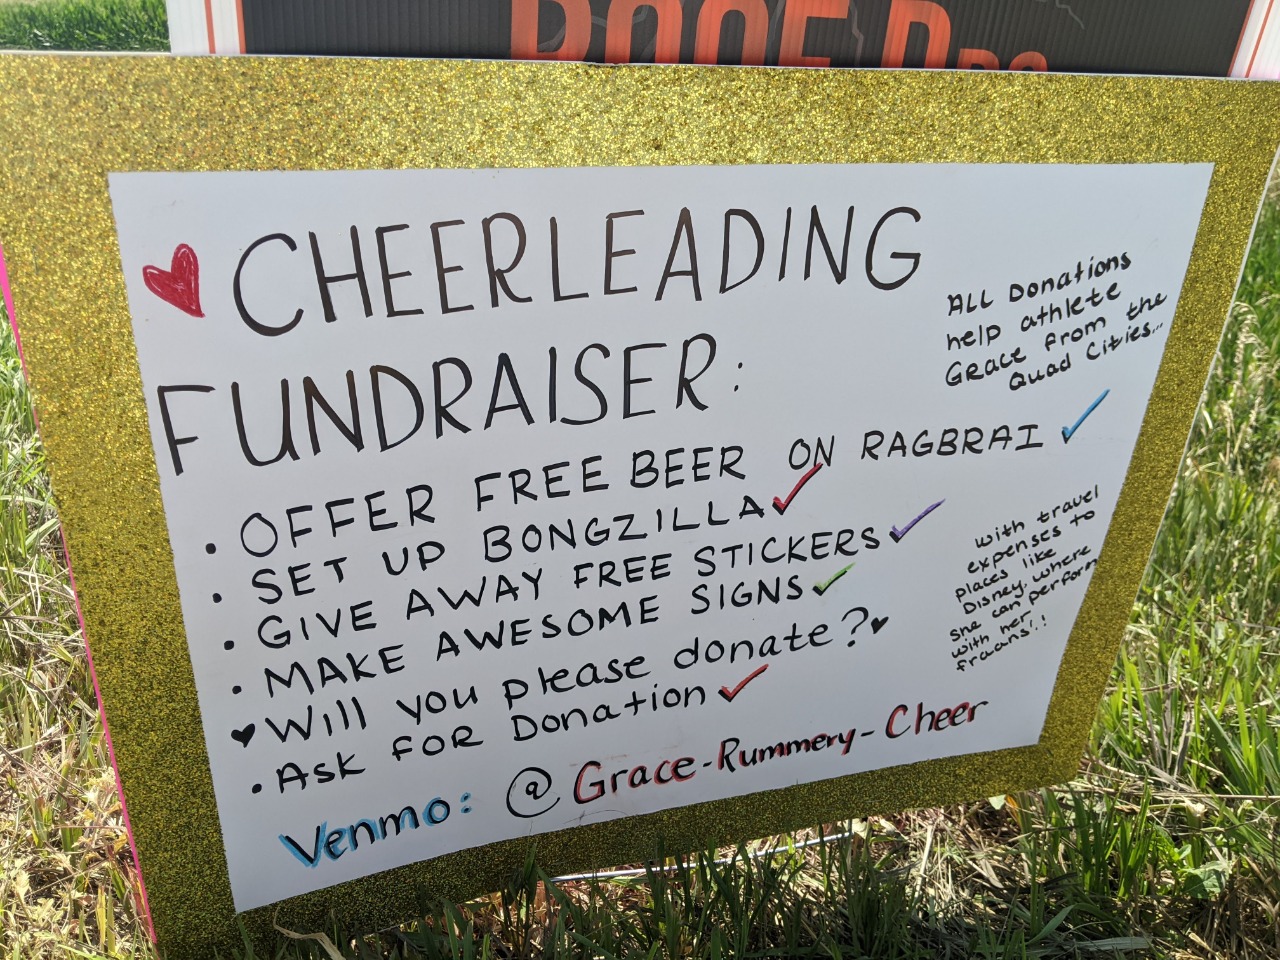 ROOF DRS
CHEERLEADING
FUNDRAISER:
ALL Donations
help athlete
Grace from the
Quad Cities...
• OFFER FREE BEER ON RAGBRAI ✓
• SET UP BONGZILLA ✓
• GIVE AWAY FREE STICKERS ✓
• MAKE AWESOME SIGNS ✓
♥ Will you please donate? ♥
• Ask FOR Donation ✓
with travel
expenses to
places like
Disney, where
she can perform
with her
fraans!!
Venmo: @Grace-Rummery-Cheer